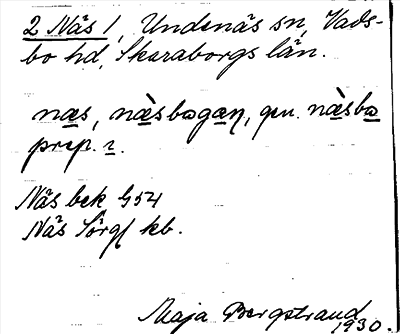 2 Näs /, Undenäs sn, Vads-
bo hd, Skaraborgs län.
næs, næ̀sbogæn, gen. næ̀sba
prep. ı.
Näs bek G54
Näs Sörg/ kb.
Maja Bergstrand
1930.